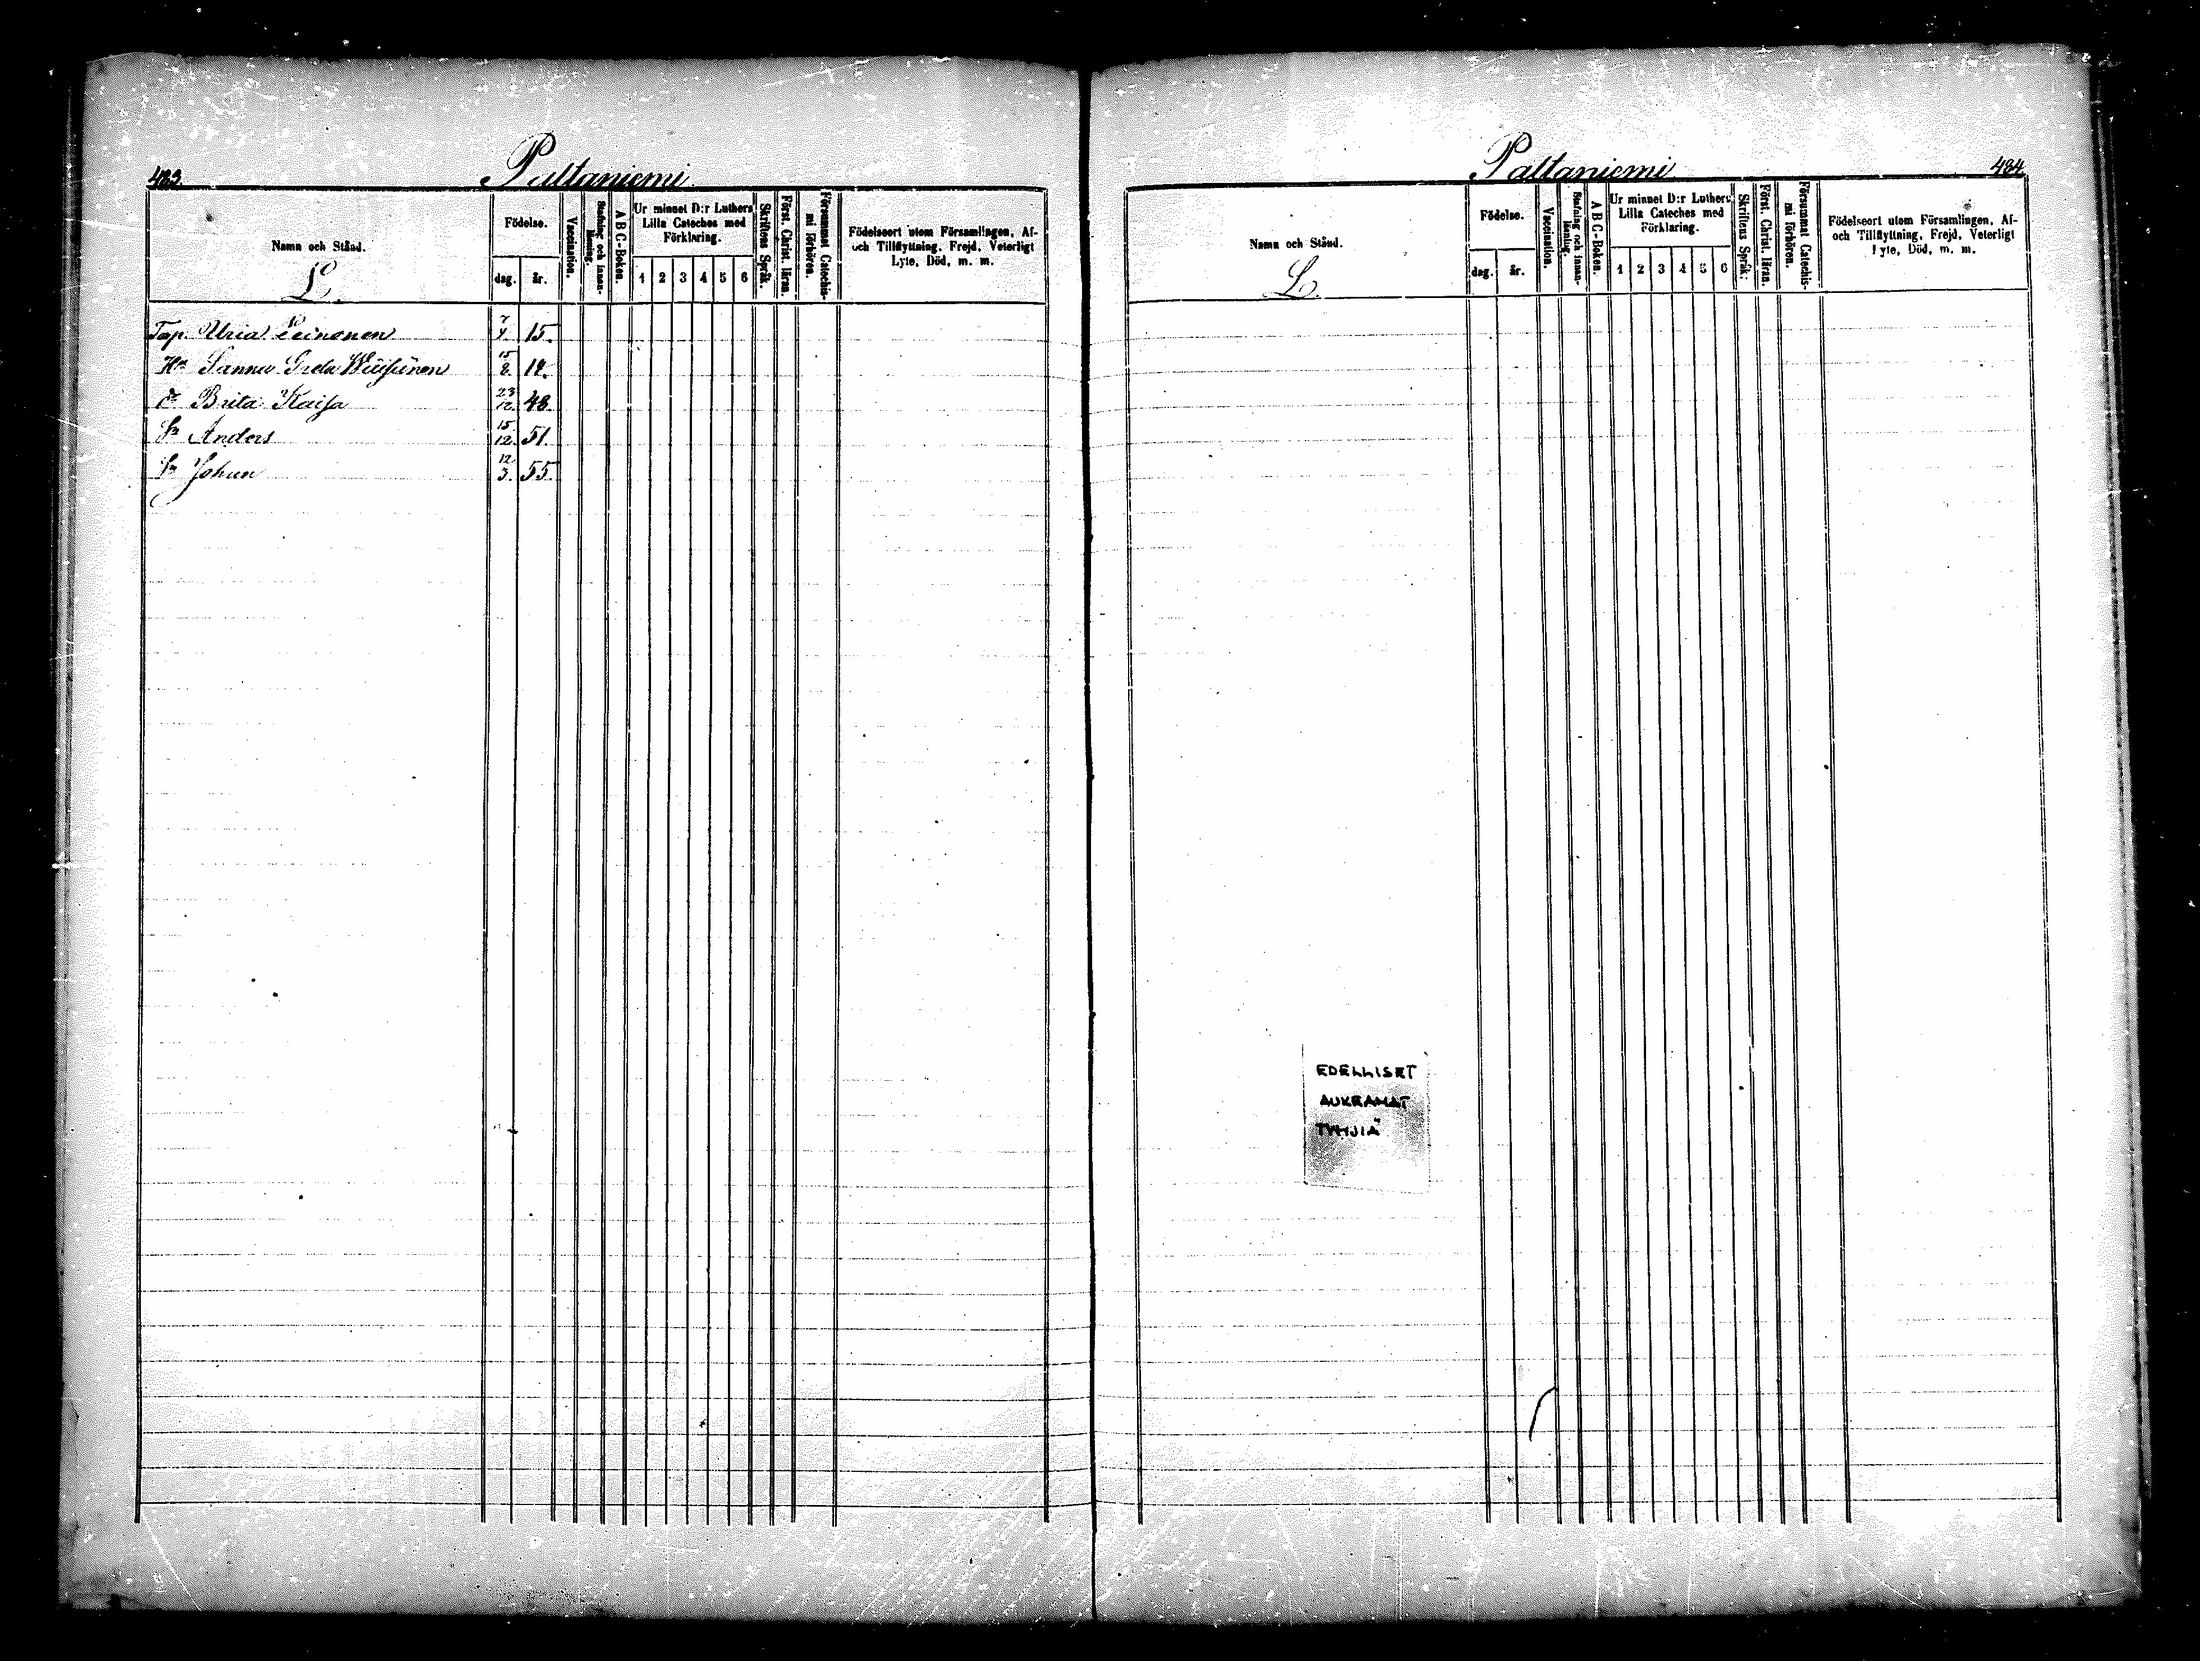 483.
Paltaniemi
Namn och Stånd.
L.
Födelse.
dag.
år.
Vaccination.
Stafning och innan-
läsning.
A B C-Boken.
Ur minnet D:r Luthers
Lilla Cateches med
Förklaring.
1 2 3 4 5 6
Skriftens Språk.
Först. Christ. läran.
Försummat Catechis-
mi förhören.
Födelseort utom Församlingen, Af-
och Tillflyttning, Frejd, Veterligt
Lyte, Död, m. m.
Tap. Uria Leinonen 7/4. 15.
Hu Sanna Greta 15/8.
dr Brita Kaisa 23/12. 48.
Sn Anders 15/12. 51.
Sn Johan 12/3. 55.
Paltaniemi
484
Namn och Stånd.
L.
Födelse.
dag.
år.
Vaccination.
Stafning och innan-
läsning.
A B C-Boken.
Ur minnet D:r Luthers
Lilla Cateches med
Förklaring.
1 2 3 4 5 6
Skriftens Språk.
Först. Christ. läran.
Försummat Catechis-
mi förhören.
Födelseort utom Församlingen, Af-
och Tillflyttning, Frejd, Veterligt
Lyte, Död, m. m.
EDELLISET
AUKEAMAT
TYHJIÄ